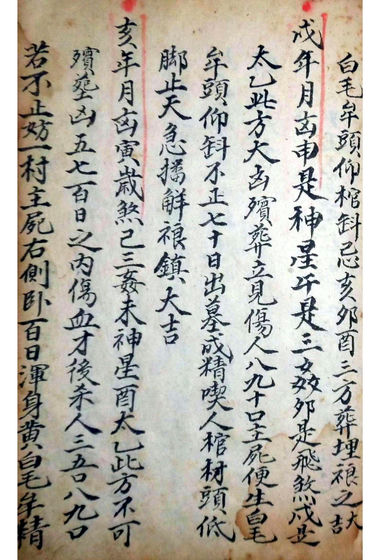 白毛牟頭仰棺斜忌亥夘酉三方葬埋禳之吉
戌年月凶申是神星午是三姦夘是飛煞戌是
太乙此方大凶殯葬立見傷人八九十口主屍便生白毛
牟頭仰斜不正七十日出墓成精喫人棺材頭低
脚止天急播解禳鎮大吉
亥年月凶寅歲煞己三姦未神星酉太乙此方不可
殯塟凶五七百日之內傷血才後杀人三五口八九口
若不正妨一村主屍右側卧百日渾身黄白毛牟精